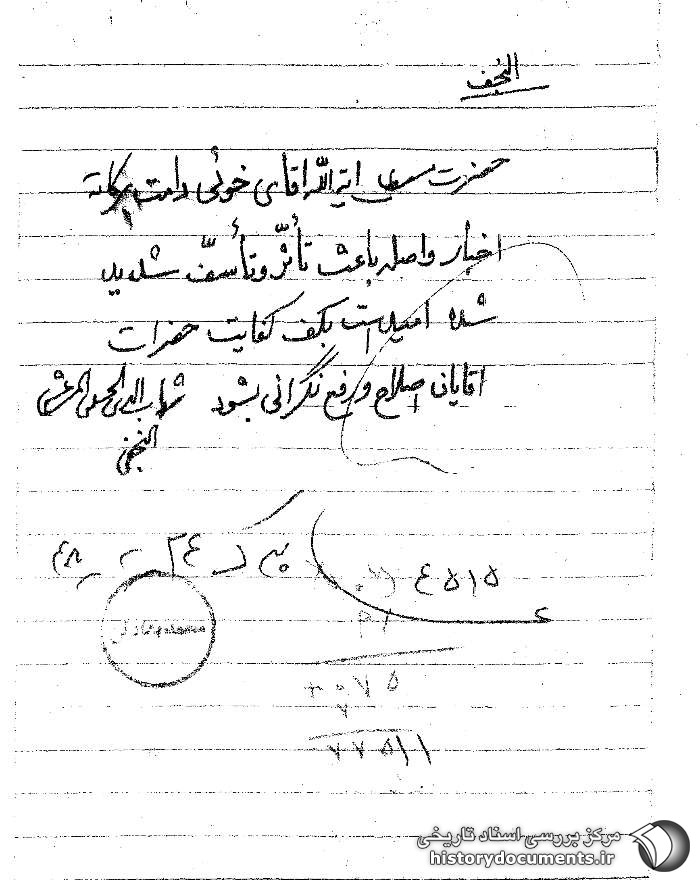 النجف
حضرت مستطاب ایة الله اقای خوئی دامت برکاته
اخبار واصله باعث تأثر و تأسف شدید
شده امید است بکف کفایت حضرات
اقایان اصلاح و رفع نگرانی بشود شهاب الدین الحسینی المرعشی
النجفی
۷۵
۷۷۵۱۱
مرکز بررسی اسناد تاریخی
historydocuments.ir